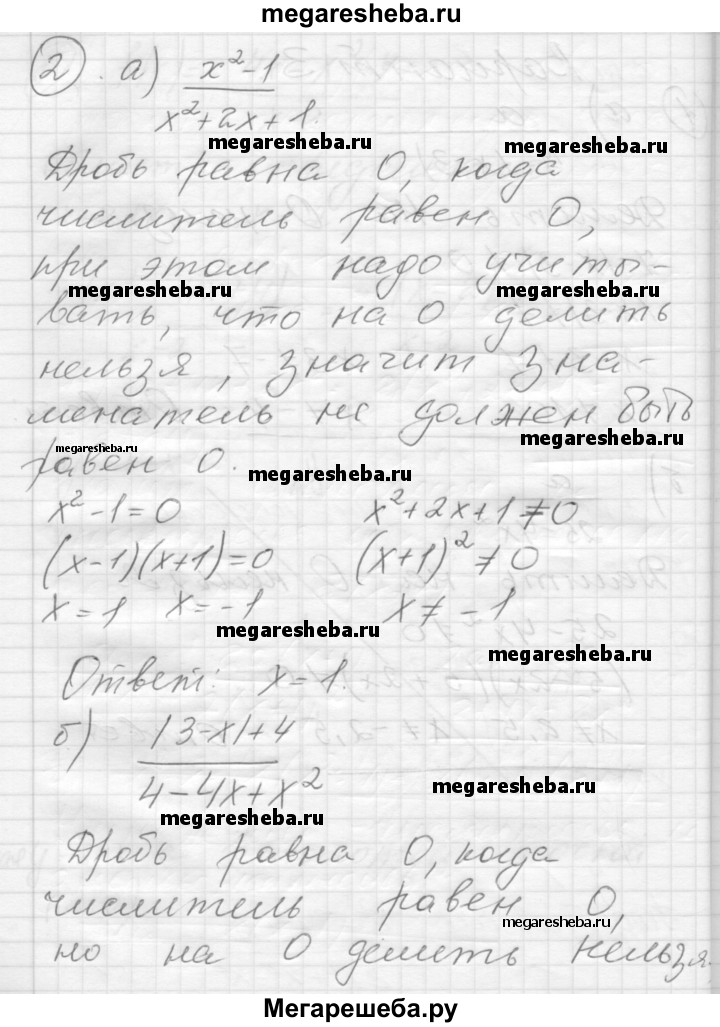 megaresheba.ru
2. а) x²-1
x²+2x+1.
megaresheba.ru megaresheba.ru
Дробь равна 0, когда
числитель равен 0,
при этом надо учиты-
megaresheba.ru megaresheba.ru
вать, что на 0 делить
нельзя, значит зна-
менатель не должен быть
megaresheba.ru megaresheba.ru
равен 0. megaresheba.ru
x²-1=0 x²+2x+1≠0
(x-1)(x+1)=0 (x+1)²≠0
x=1 x=-1 x≠-1
megaresheba.ru megaresheba.ru
Ответ: x=1.
б) |3-x|+4
4-4x+x²
megaresheba.ru megaresheba.ru
Дробь равна 0, когда
числитель равен 0,
megaresheba.ru
но на 0 делить нельзя.
megaresheba.ru megaresheba.ru
Мегарешеба.ру